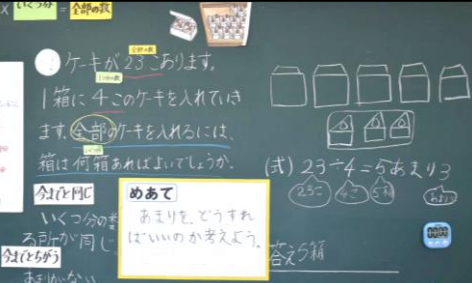 × いくつ分 = 全部の数
全部の数
ケーキが23こあります。
1つ分の数
1箱に4このケーキを入れていき
ます。全部のケーキを入れるには、
いくつ分
箱は何箱あればよいでしょうか。
今までと同じ
いくつ分の
る所が同じ
今までとちがう
めあて
あまりを、どうすれ
ばいいのか考えよう。
(式) 23÷4=5あまり3
23こ 4こ 5箱
答え5箱